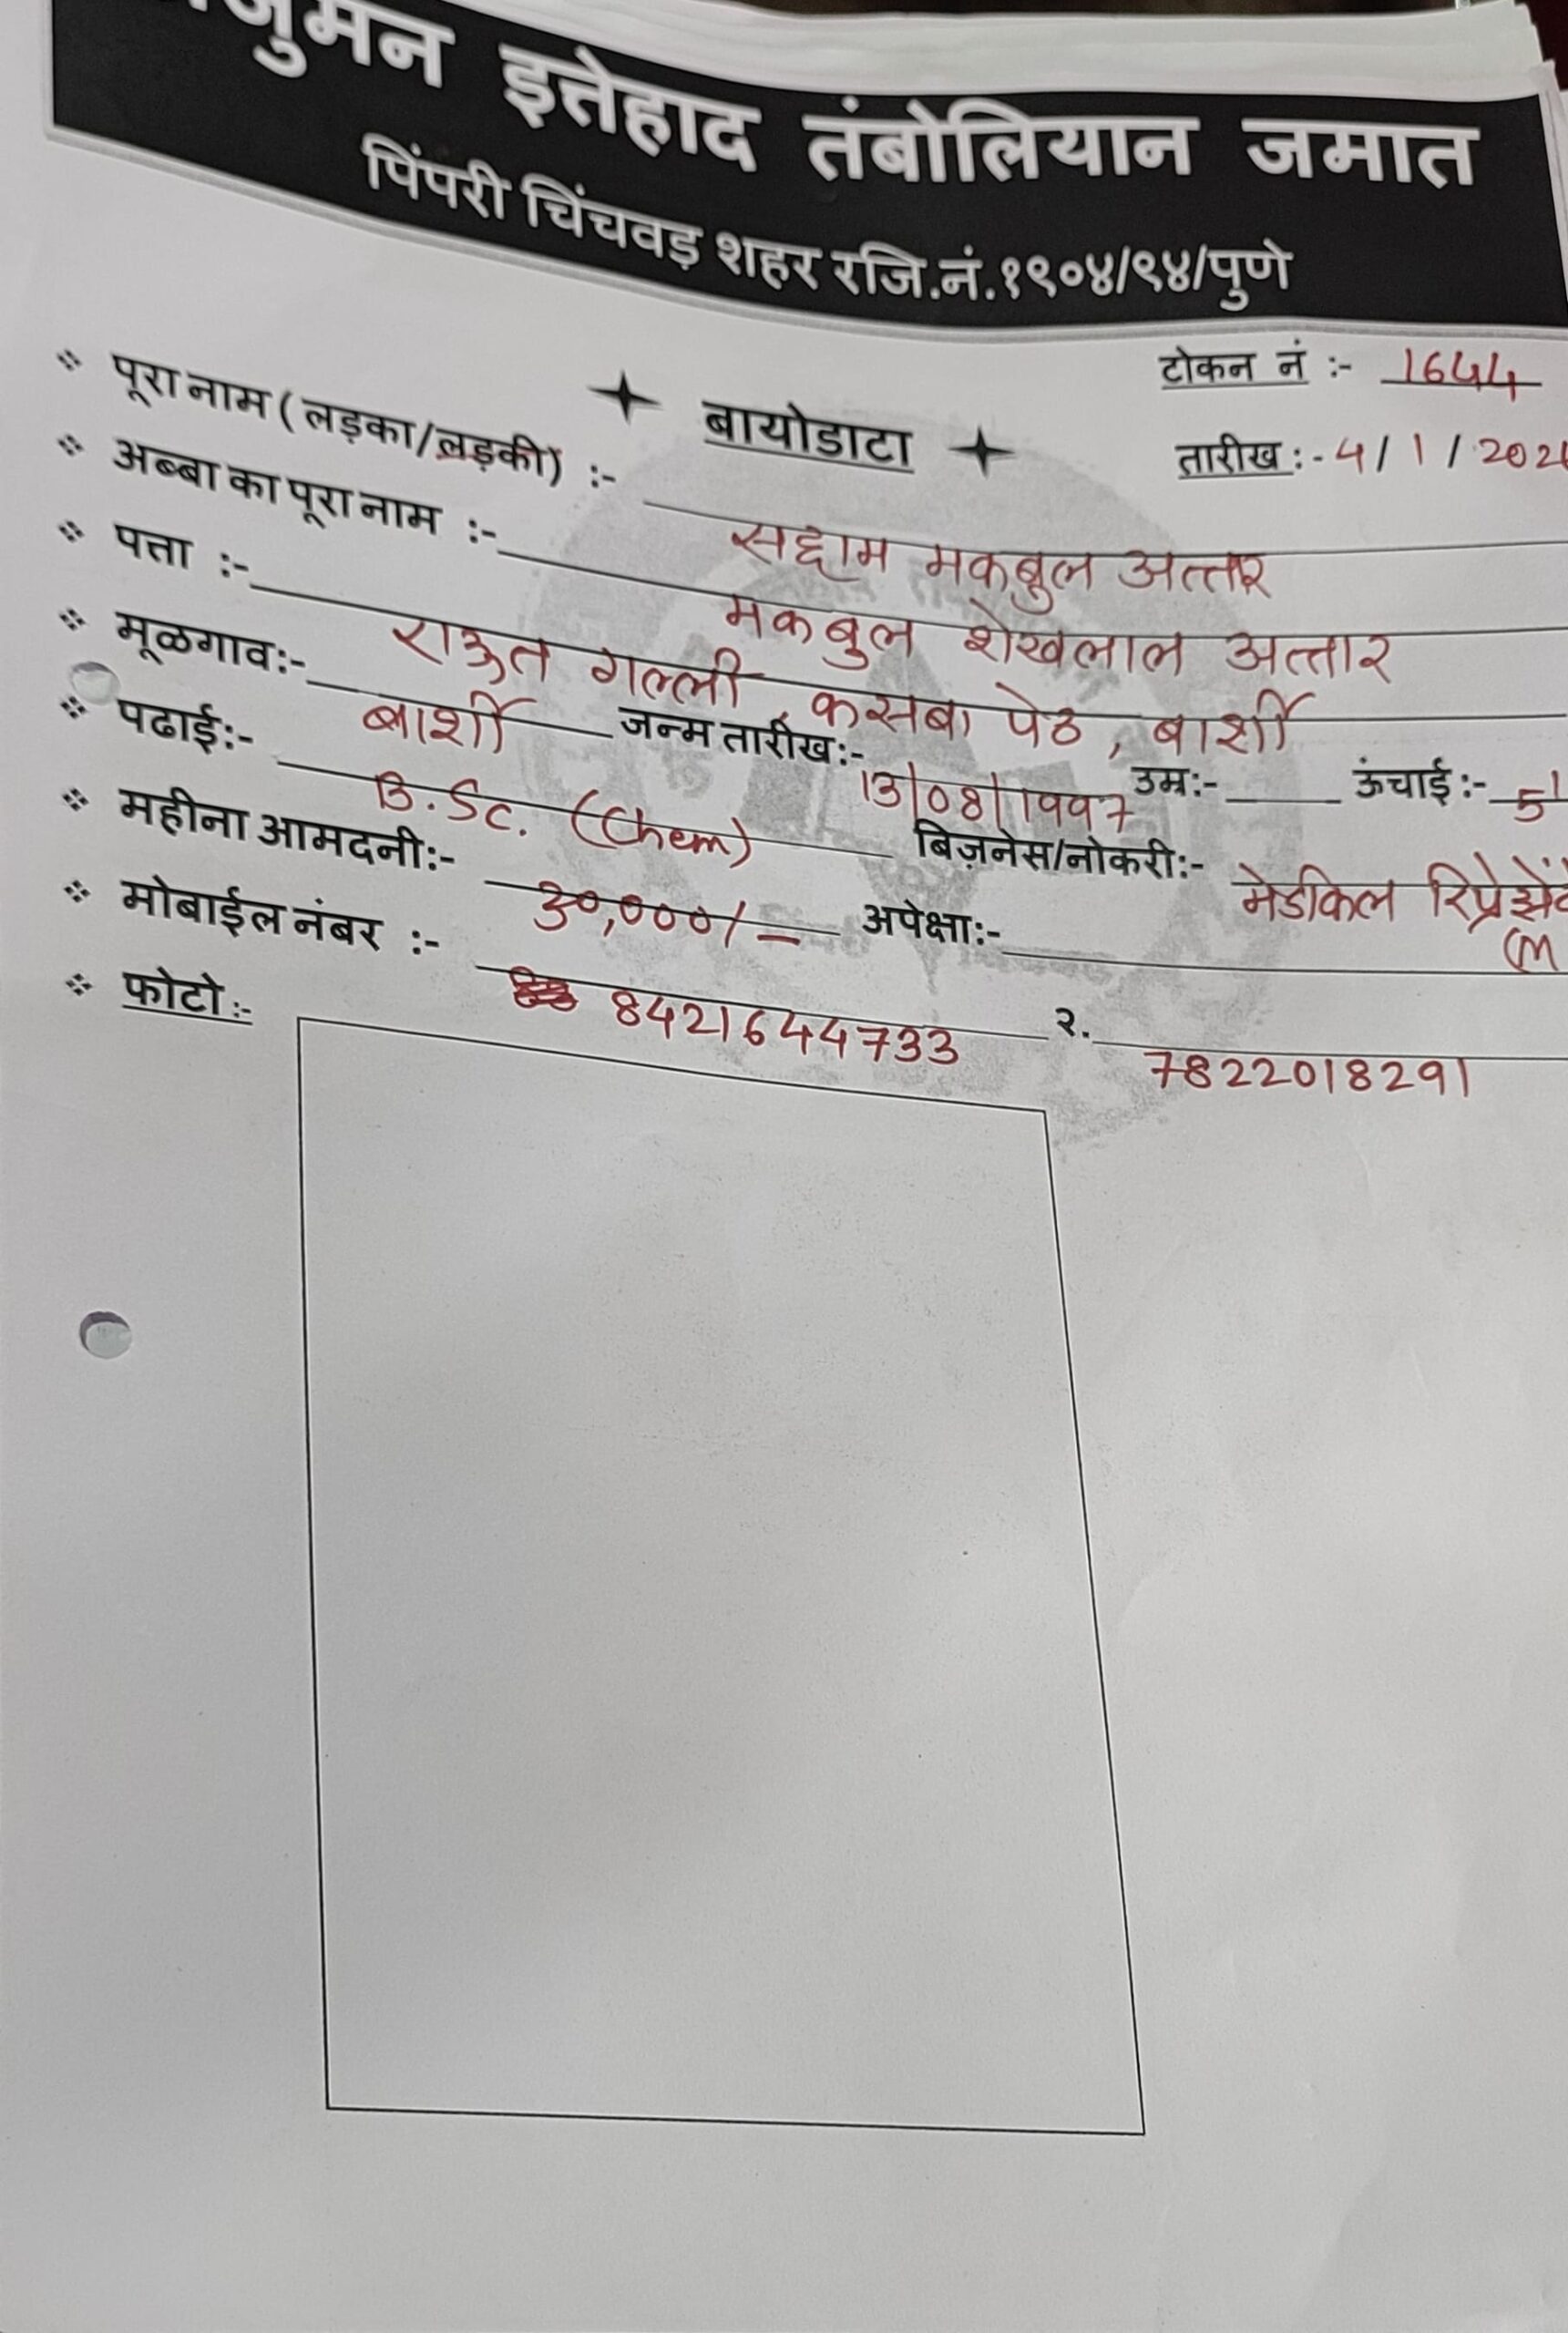 इत्तेहाद तंबोलियान जमात
पिंपरी चिंचवड़ शहर रजि.नं.१९०४/९४/पुणे
टोकन नं :- 1644
बायोडाटा
तारीख :- 4/1/202
पूरा नाम ( लड़का/लड़की) :- सद्दाम मकबुल अत्तार
अब्बा का पूरा नाम :- मकबुल शेखलाल अत्तार
पत्ता :- राऊत गल्ली, कसबा पेठ, बार्शी
मूळगाव:- बार्शी जन्म तारीख:- 13/08/1997 उम्र:- ऊंचाई :- 5'
पढाई:- B.Sc. (Chem) बिज़नेस/नोकरी:- मेडीकल
महीना आमदनी:- 30,000/- अपेक्षा:-
मोबाईल नंबर :- 8421644733 २. 7822018291
फोटो :-